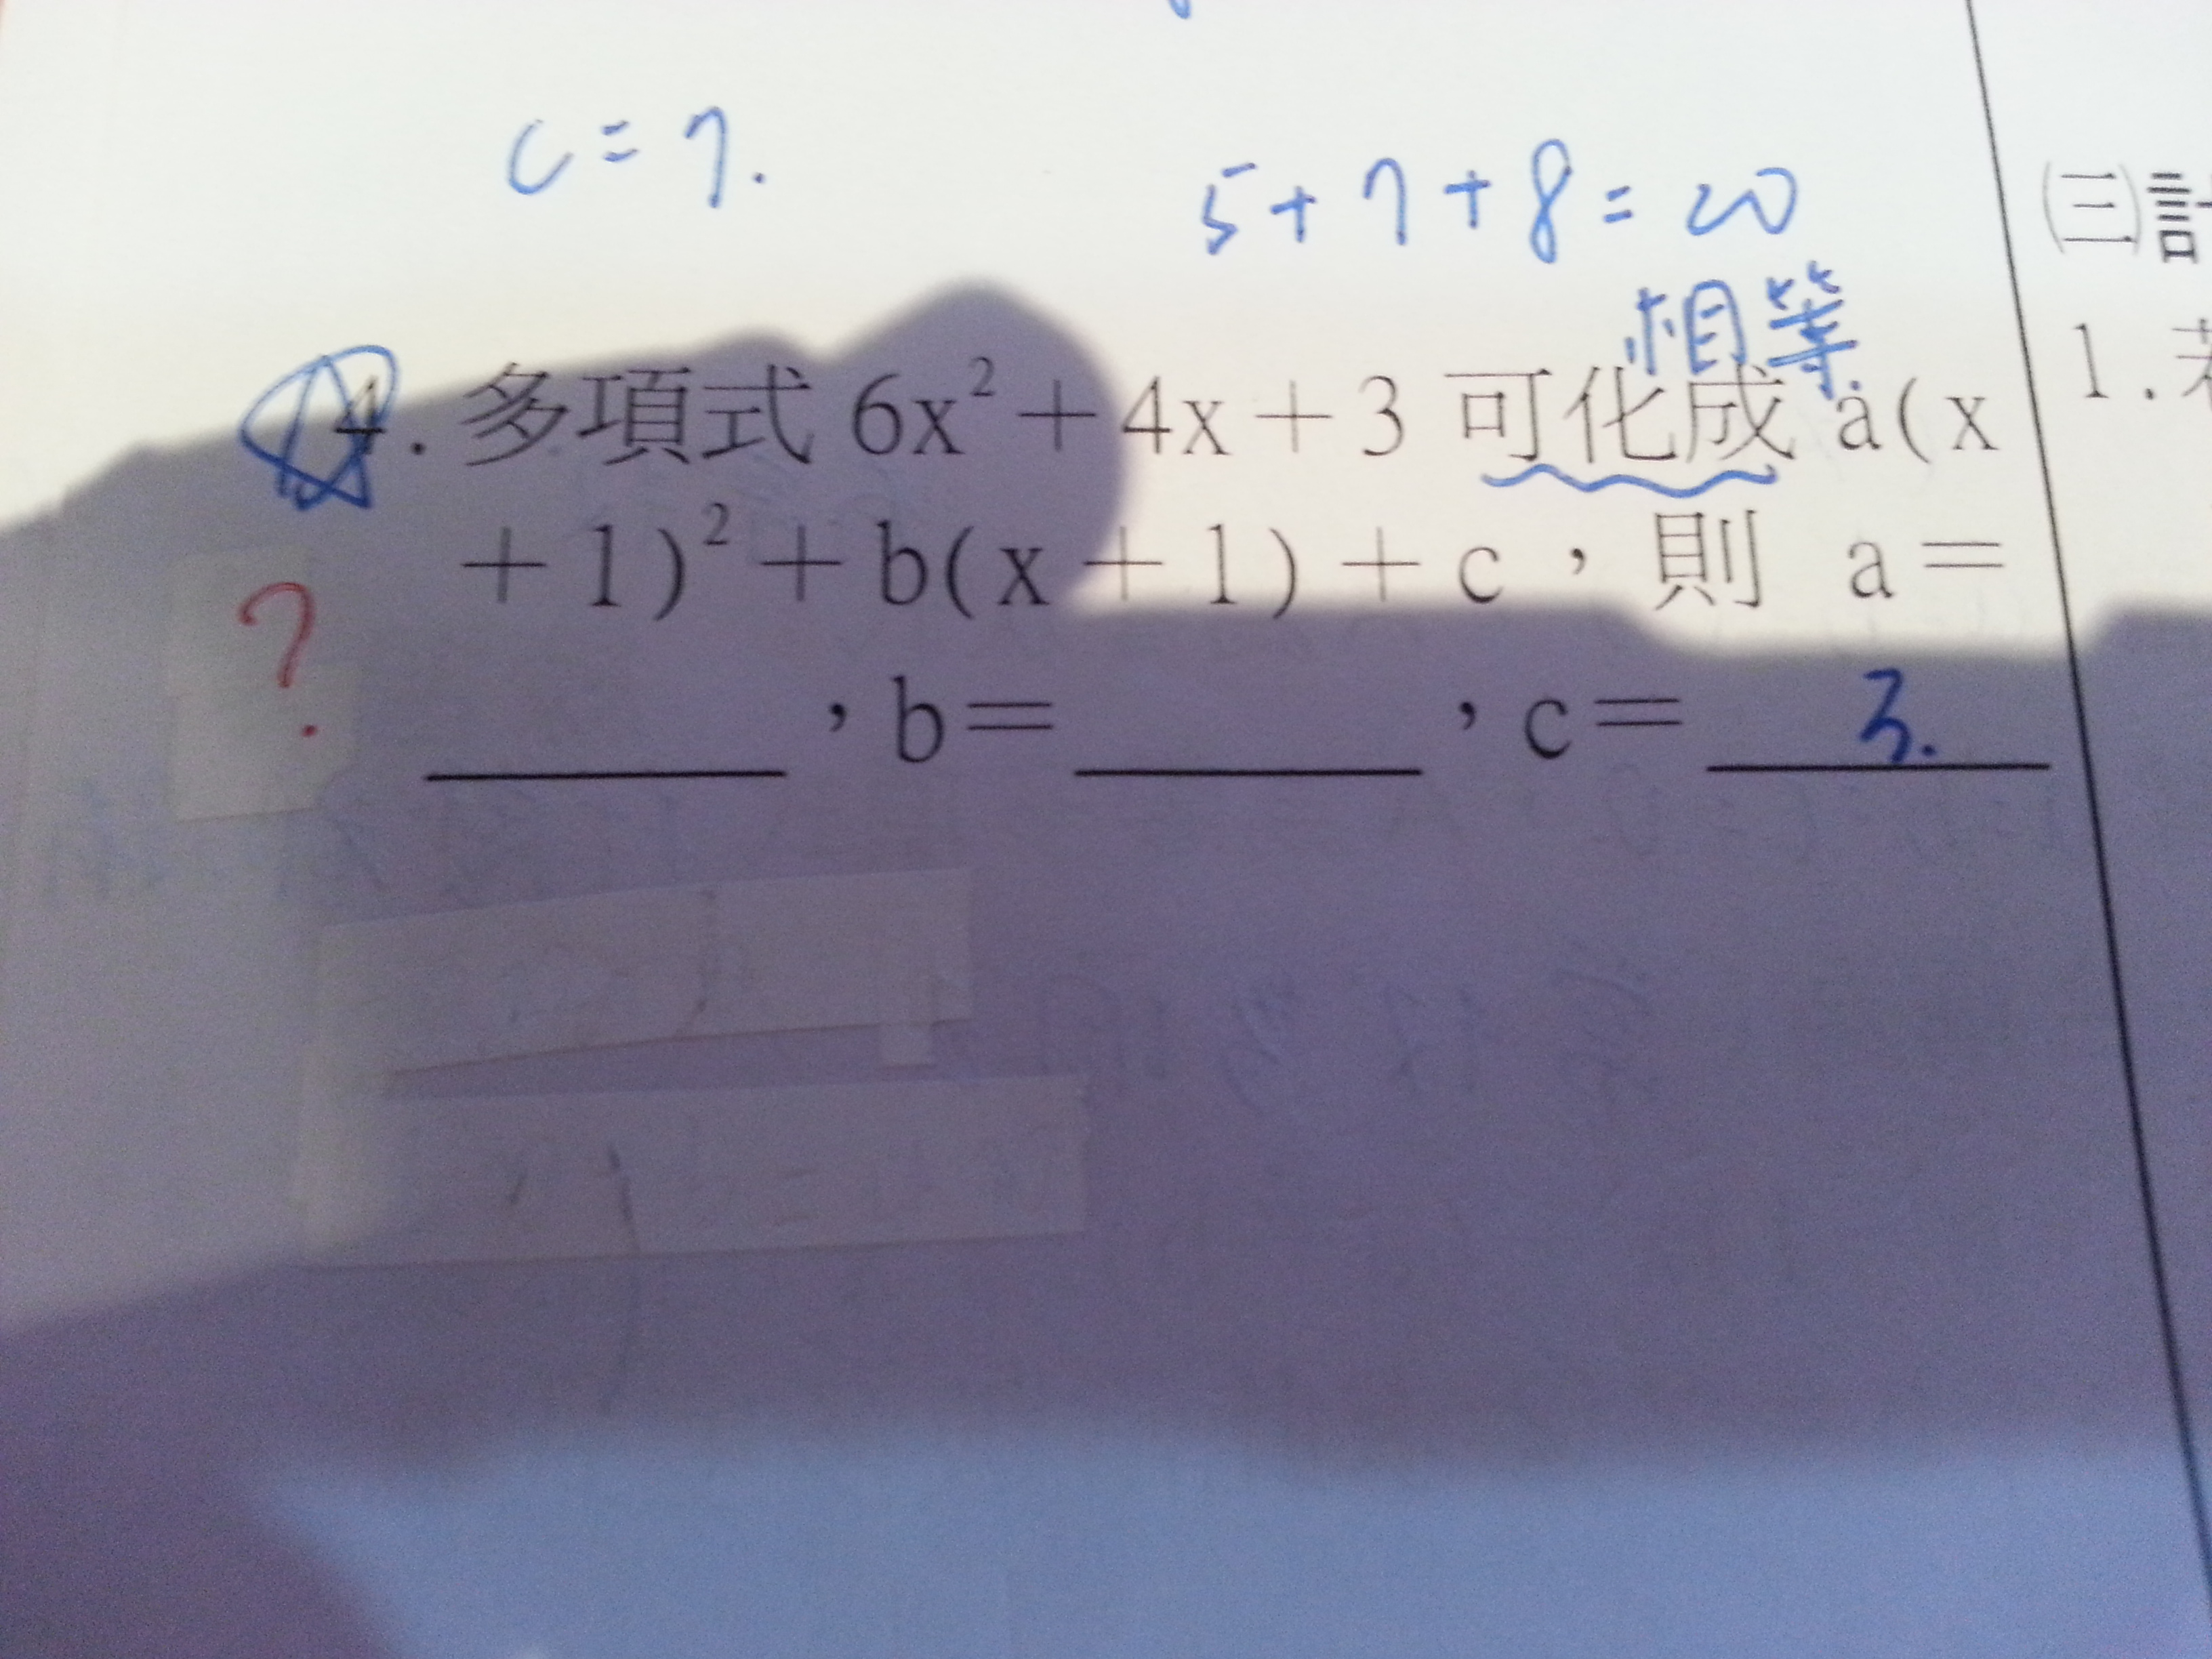 c=7.
5+7+8=20
相等.
4.多項式 6x²+4x+3 可化成 a(x
+1)²+b(x+1)+c，則 a=
?
，b= ，c= 3.
㈢計
1.若